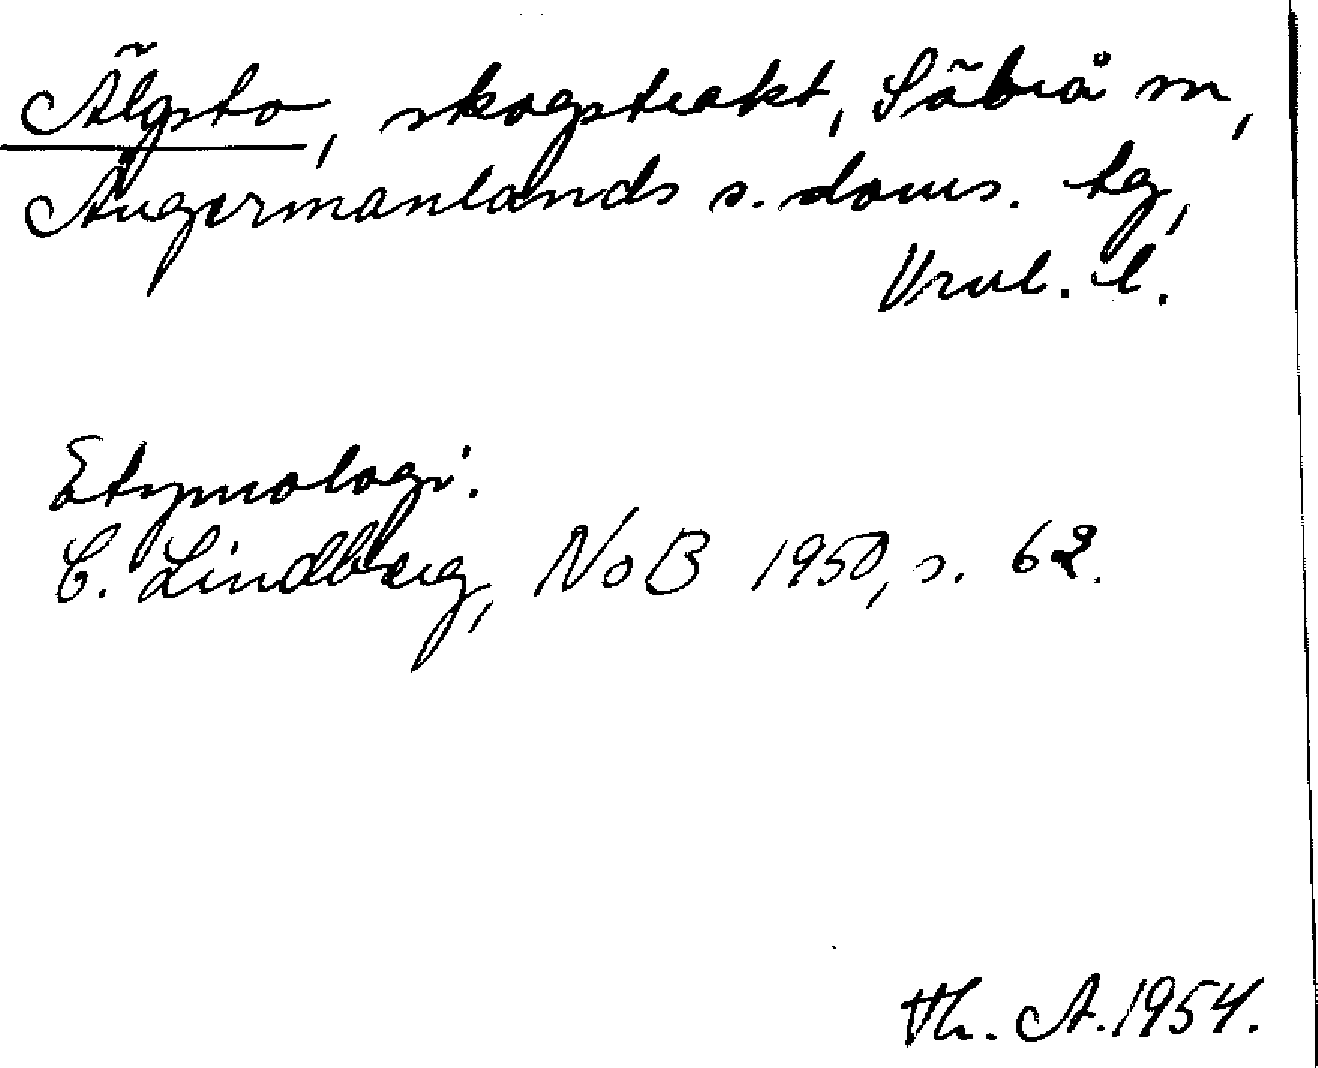 Älgsto, skogstrakt, Säbrå sn,
Ångermanlands s. doms. tg,
Vnl. l.
Etymologi:
C. Lindberg, NoB 1950, s. 62.
Th. A. 1954.